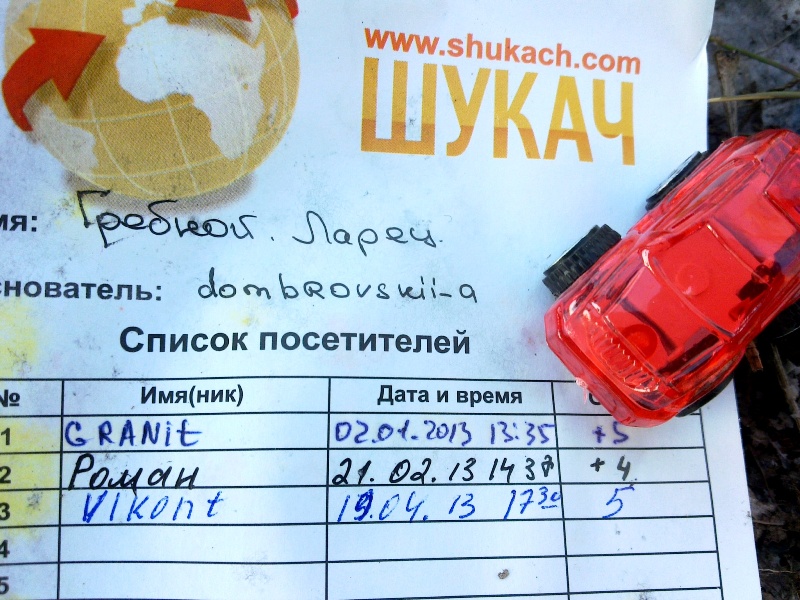 www.shukach.com
ШУКАЧ
мя: Гребной. Ларец.
снователь: dombrovskii-a
Список посетителей
№ Имя(ник) Дата и время
1 GRANit 02.01.2013 13:35 +5
2 Роман 21.02.13 14 37 +4
3 Vikont 19.04.13 17 30 5
4
5